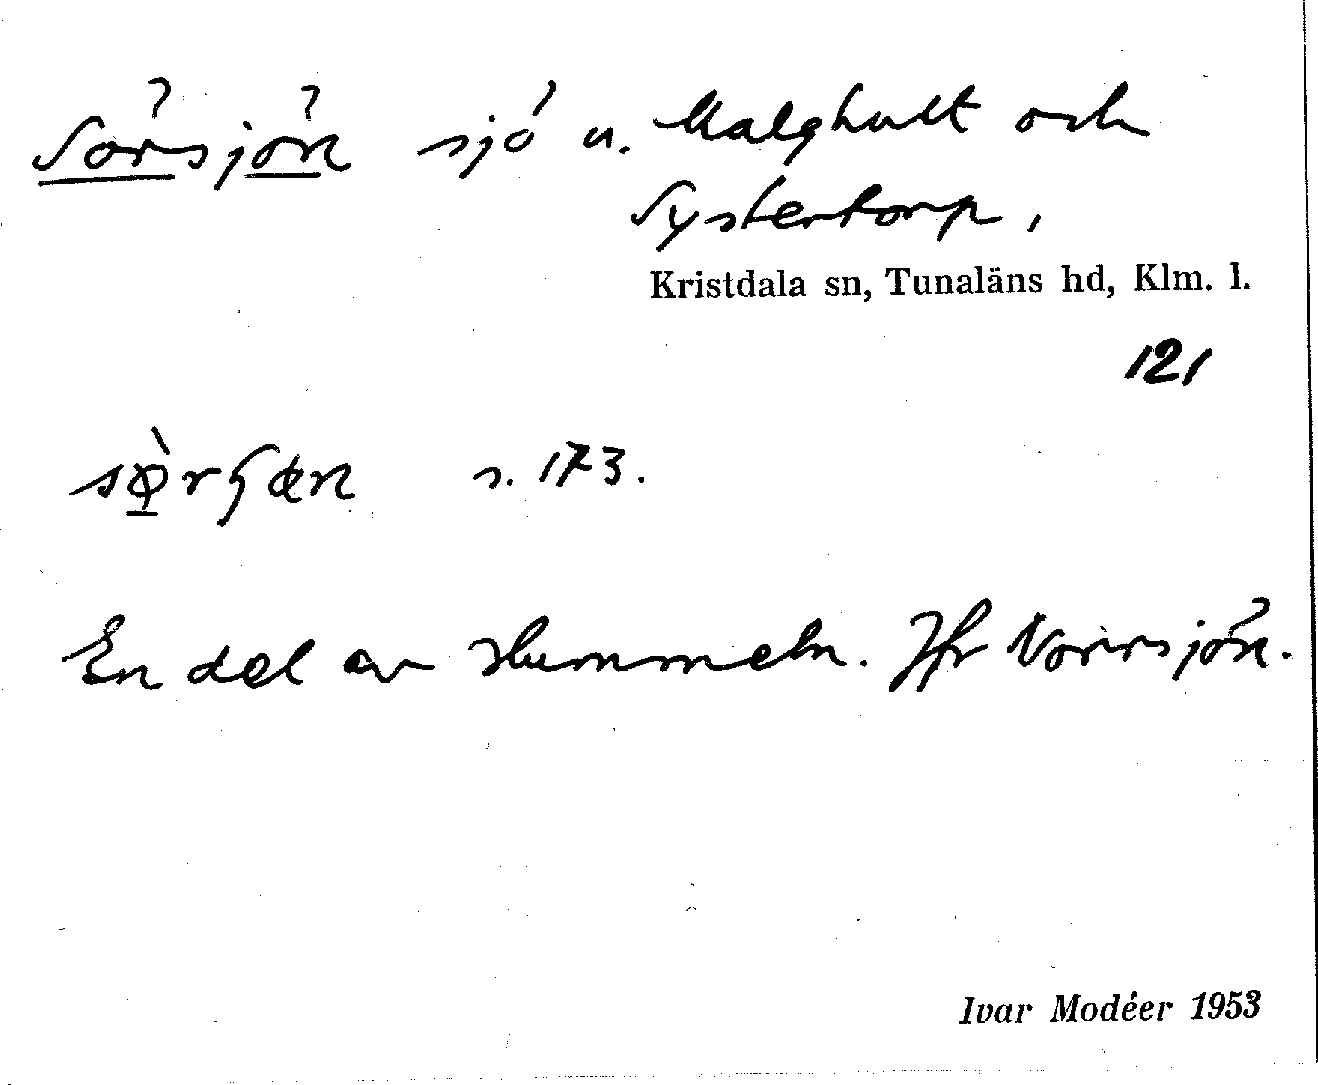 Sörsjön sjö u. Malghult och
Systertorp,
Kristdala sn, Tunaläns hd, Klm. l.
121
s. 173.
En del av Hummeln. Jfr Norrsjön.
Ivar Modéer 1953